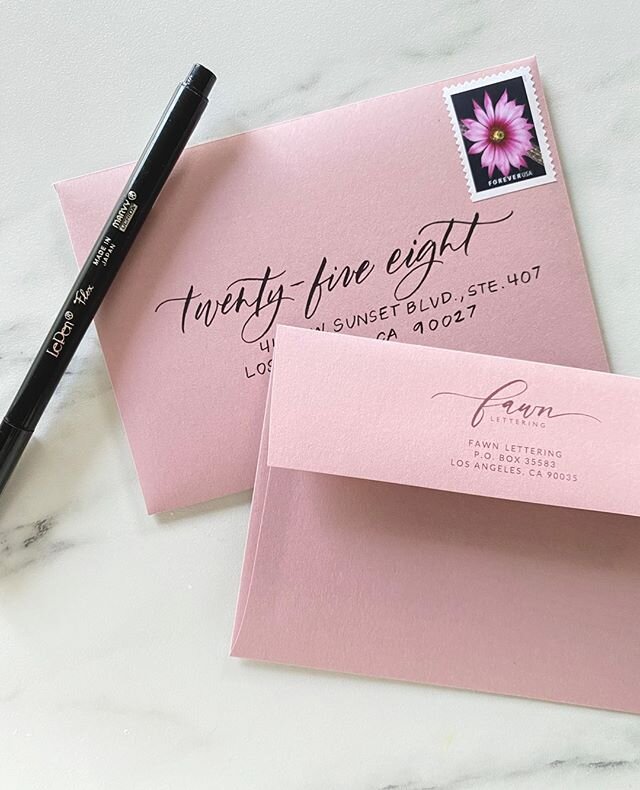 FOREVER USA
twenty-five eight
SUNSET BLVD., STE. 407
CA 90027
fawn
LETTERING
FAWN LETTERING
P.O. BOX 35583
LOS ANGELES, CA 90035
LePen® Flex MADE IN JAPAN MARVY®